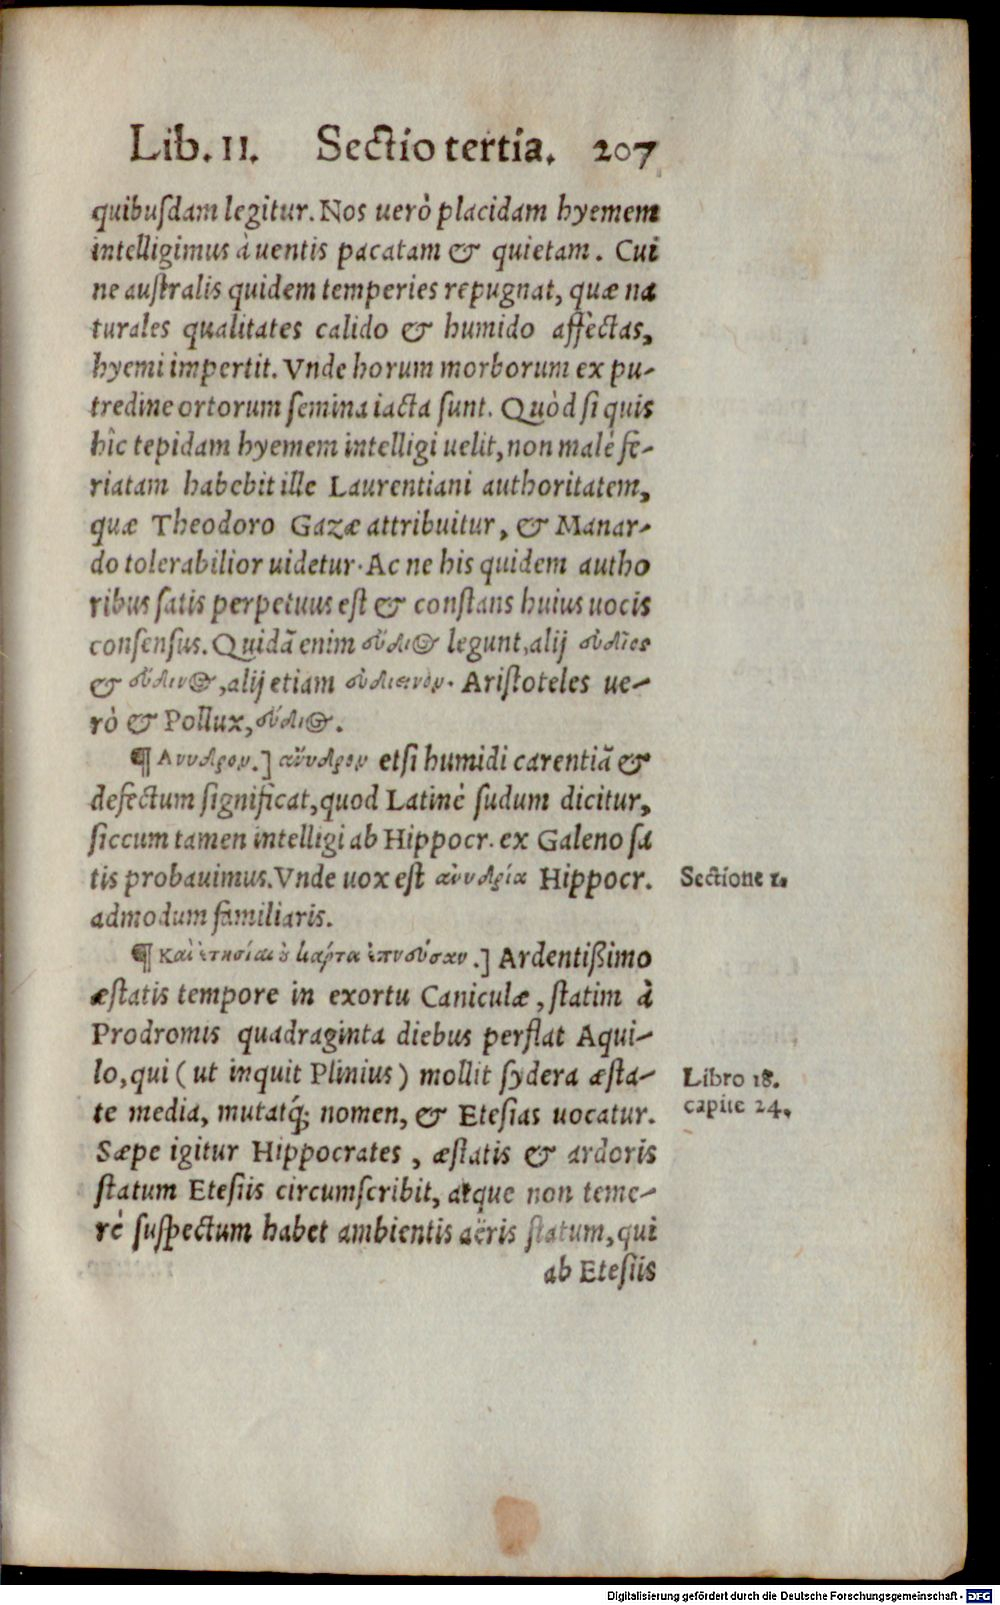 Lib. II. Sectio tertia. 207
quibusdam legitur. Nos uerò placidam hyemem
intelligimus à uentis pacatam & quietam. Cui
ne australis quidem temperies repugnat, quæ na
turales qualitates calido & humido affectas,
hyemi impertit. Vnde horum morborum ex pu-
tredine ortorum semina iacta sunt. Quòd si quis
hîc tepidam hyemem intelligi uelit, non malè fe-
riatam habebit ille Laurentiani authoritatem,
quæ Theodoro Gazæ attribuitur, & Manar-
do tolerabilior uidetur. Ac ne his quidem autho
ribus satis perpetuus est & constans huius uocis
consensus. Quidã enim εὔδιος legunt, alij
& , alij etiam . Aristoteles ue-
rò & Pollux, εὔδιος.
¶ Ανυδρον.] ἄνυδρον etsi humidi carentiã &
defectum significat, quod Latinè sudum dicitur,
siccum tamen intelligi ab Hippocr. ex Galeno sa
tis probauimus. Vnde uox est ἀνυδρία Hippocr.
Sectione 1.
admodum familiaris.
¶ Καὶ ἐτησίαι ὀ μάρτα ἐπνούσαν.] Ardentißimo
æstatis tempore in exortu Caniculæ, statim à
Prodromis quadraginta diebus perflat Aqui-
lo, qui (ut inquit Plinius) mollit sydera æsta-
Libro 18.
capite 24.
te media, mutatq́; nomen, & Etesias uocatur.
Sæpe igitur Hippocrates, æstatis & ardoris
statum Etesiis circumscribit, atque non teme-
rè suspectum habet ambientis aëris statum, qui
ab Etesiis
Digitalisierung gefördert durch die Deutsche Forschungsgemeinschaft - DFG